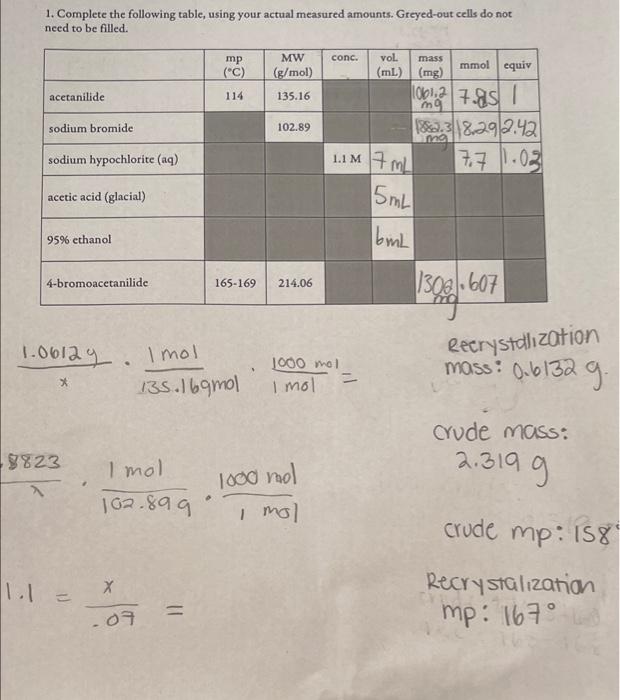 1. Complete the following table, using your actual measured amounts. Greyed-out cells do not
need to be filled.
mp (°C) MW (g/mol) conc. vol. (mL) mass (mg) mmol equiv
acetanilide 114 135.16 1061.2 mg 7.85 1
sodium bromide 102.89 1882.3 mg 18.29 2.42
sodium hypochlorite (aq) 1.1 M 7 mL 7.7 1.03
acetic acid (glacial) 5mL
95% ethanol 6mL
4-bromoacetanilide 165-169 214.06 mg .607
1.0612 g / x · 1 mol / 135.16gmol · 1000 mol / 1 mol =
.8823 / x · 1 mol / 102.89 g · 1000 mol / 1 mol
1.1 = x / .07 =
Recrystallization
mass: 0.6132 g.
crude mass:
2.319 g
crude mp: 158°
Recrystalization
mp: 167°